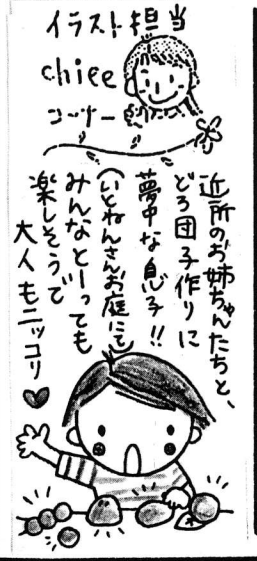 イラスト担当
chiee
コーナー
近所のお姉ちゃんたちと、
どろ団子作りに
夢中な息子!!
(いとねんさんお庭にて)
みんなとーっても
楽しそうで
大人もニッコリ♥